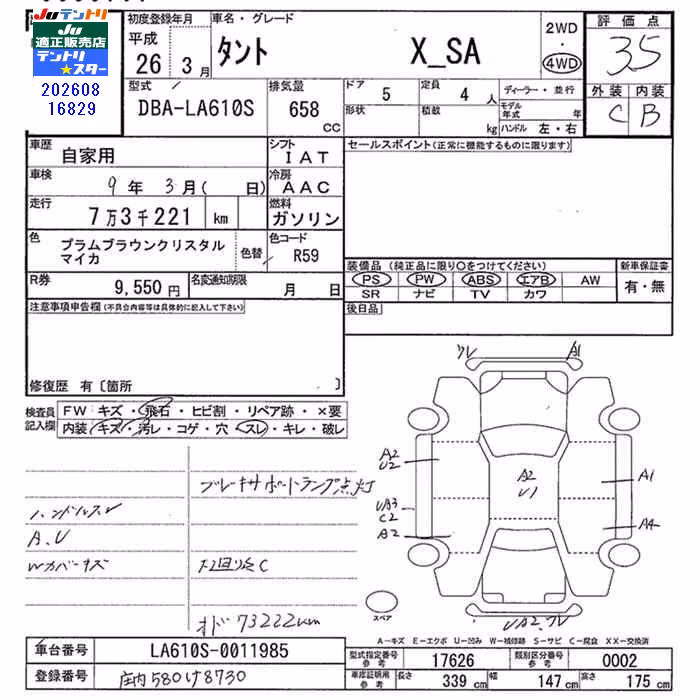 Juテントリ
Ju適正販売店
テントリ
★スター
202608
16829
初度登録年月
平成
26 3月
車名・グレード
タント X_SA
2WD
・
4WD
評価点
3.5
外装 内装
C B
型式
DBA-LA610S
排気量
658
CC
ドア
5
定員
4 人
ディーラー・並行
形状
積載
kg
モデル年式 年
ハンドル 左・右
車歴
自家用
シフト
IAT
セールスポイント(正常に機能するものに限ります)
車検
9年 3月( 日)
冷房
AAC
走行
7万3千221 km
燃料
ガソリン
色
プラムブラウンクリスタル
マイカ
色替
色コード
R59
装備品 (純正品に限り○をつけてください)
新車保証書
PS PW ABS エアB AW
有・無
SR ナビ TV カワ
R券
9,550円
名変通知期限
月 日
後日品
注意事項申告欄(不具合内容等は具体的に記入して下さい)
修復歴 有〔箇所 〕
検査員
記入欄
FW キズ・飛石・ヒビ割・リペア跡・×要
内装 キズ・汚レ・コゲ・穴・スレ・キレ・破レ
ブレーキサポートランプ点灯
ハンドルスレ
A.U
Wカバーキズ
下廻り錆C
オド 73222km
ワレ A1
A2
U2
A2
U1
A1
UA3
C2
A2
A4
UA2.ワレ
スペア
A－キズ E－エクボ U－凹み W－補修跡 S－サビ C－腐食 XX－交換済
車台番号
LA610S-0011985
登録番号
庄内580け8730
型式指定番号
参考
17626
類別区分番号
参考
0002
車庫証明用
参考
長さ
339 cm
幅
147 cm
高さ
175 cm